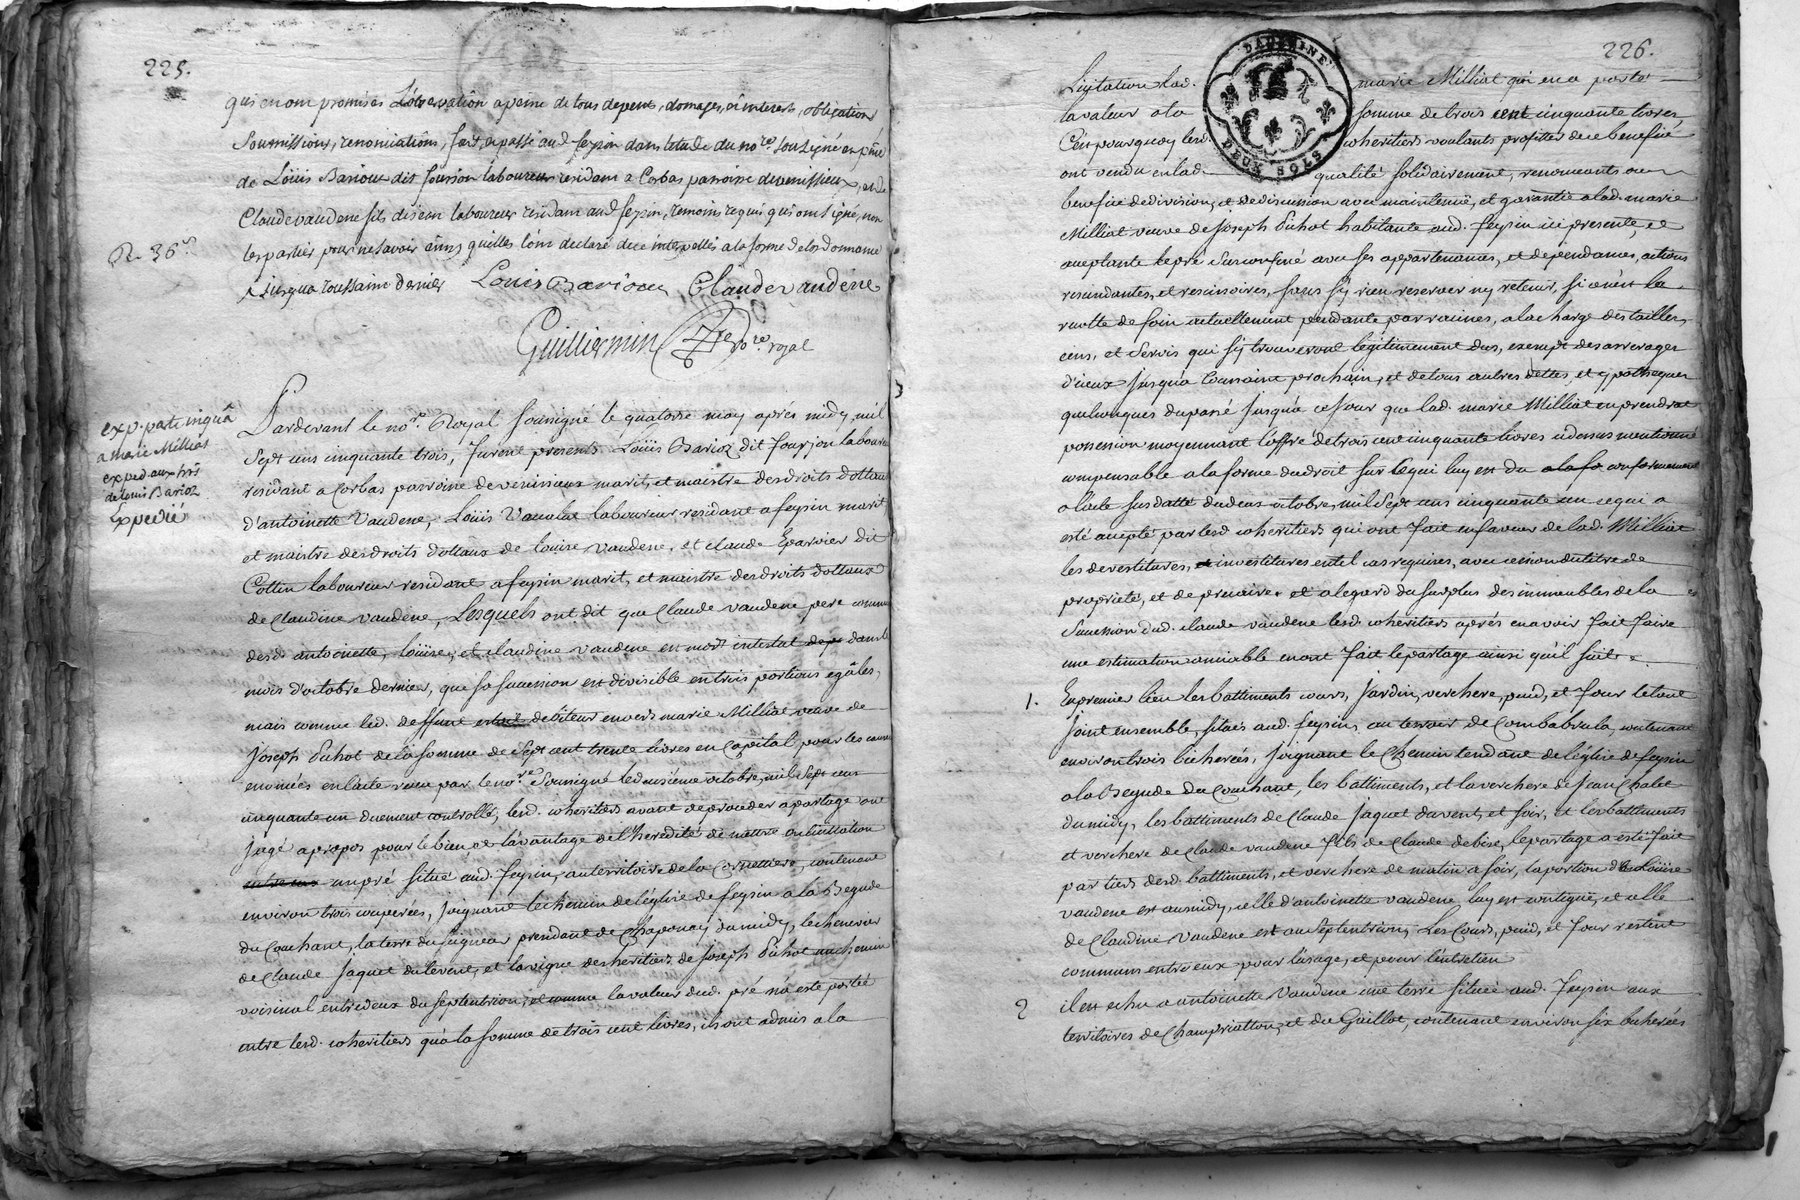 225.
qui en ont promis l'observation a peine de tous depens, domages, et interests, obligations
soumissions, renonciations, fait, et passé aud. feysin dans l'etude du no.re soussigné en pnce
de Loüis Barioz dit fourjon laboureur residant a Corbas parroisse de venissieux, et de
Claude vaudene fils de jean laboureur residant aud. feysin, temoins requis qui ont signé, non
les parties pour ne savoir ainsy quelles l'ont declaré de ce interpellés a la forme de lordonnance
R. 36 s
a jusqua toussaint dernier Louis Barioz Claude vaudene
Guilliermin no.re royal
exp. parte in quâ
a marie Milliat
exped. aux hrs
de louis Barioz
Expedié
Pardevant le no.re Royal soussigné le quatorze may aprés midy, mil
sept cens cinquante trois, furent presents Loüis Barioz dit fourjon laboureur
residant a Corbas parroisse de venissieux marit, et maistre des droits dottaux
d'antoinette Vaudene, Loüis laboureur residant a feysin marit,
et maistre des droits dottaux de loüise vaudene, et claude Eparvier dit
Cottin laboureur residant a feysin marit, et maistre des droits dottaux
de Claudine vaudene, Lesquels ont dit que Claude vaudene pere commun
desd. antoinette, loüise, et claudine vaudene en mort intestat dans le
mois d'octobre dernier, que sa succession est divisible en trois portions egâles,
mais comme led. deffunt estoit debiteur envers marie Milliat veuve de
Joseph Duhot de la somme de sept cent trente livres en Capital pour les causes
enoncées en l'acte recu par le no.re soussigné le deuxiéme octobre, mil sept cens
cinquante un duement controllé, lesd. coheritiers avant de proceder a partage ont
jugé a propos pour le bien, et lavantage de l'heredité de mettre en licitation
entre eux un pré situé aud. feysin, au territoire de la Cornettiere, contenant
environ trois couperées, joignant le chemin de l'église de feysin a la Begude
du Couchant, la terre du seigneur prendant de Chaponay du midy, le chenevier
de Claude Jaquet du levant, et la vigne des heritiers de Joseph Duhot un chemin
voisinal entre deux du septentrion, et comme la valeur dud. pré n'a esté portée
entre lesd. coheritiers qu'a la somme de trois cent livres, ils ont admis a la
226.
DAUPHINE
DEUX SOLS
Licitation lad. marie Milliat qui en a porté
la valeur a la somme de trois cent cinquante livres,
C'est pourquoy lesd. coheritiers voulants profiter de ce benefice
ont vendu en lad. qualité solidairement, renonceants au
benefice de division, et de discussion avec maintenüe, et garantie a lad. marie
Milliat veuve de Joseph Duhot habitante aud. feysin icy presente, et
acceptante le pré susconfiné avec ses appartenances, et dependances, actions
rescindantes, et rescisoires, sans s'y rien reserver ny retenir, si ce n'est la
recolte de foin actuellement pendante par racines, a la charge des tailles,
cens, et servis qui s'y trouveront légitimement dus, exempt des arrerages
d'iceux jusqu'a toussaint prochain, et de tous autres dettes, et ypotheques
quelconques du passé jusqu'a ce jour que lad. marie Milliat en prendra
possession moyennant l'offre de trois cent cinquante livres cidessus mentionné
compensable a la forme du droit sur ce qui luy est du conformement
a l'acte susdatté du deux octobre, mil sept cens cinquante un ce qui a
esté accepté par lesd. coheritiers qui ont fait en faveur de lad. Milliat
les devestitures, et investitures en tel cas requises, avec cession du titre de
proprieté, et de precaire et a legard du surplus des immeubles de la
succession dud. claude vaudene lesd. coheritiers aprés en avoir fait faire
une estimation amiable en ont fait le partage ainsi quil suit
1. En premier lieu les battiments cours, jardin, verchere, puid, et four le tout
joint ensemble, situés aud. feysin, au terroir de Combabrula, contenant
environ trois bicherées, joignant le Chemin tendant de l'église de feysin
a la Begude du Couchant, les battiments, et la verchere de Jean Chalet
du midy, les battiments de Claude Jaquet du vent, et soir, et les battiments
et verchere de Claude vaudene fils de Claude de bize, le partage a esté fait
par tiers desd. battiments, et verchere de matin a soir, la portion de loüise
vaudene est au midy, celle d'antoinette vaudene luy est contiguë, et celle
de Claudine vaudene est au septentrion, les Cours, puid, et four restent
communs entre eux pour l'usage, et pour l'entretien
2 il est echu a antoinette Vaudene une terre située aud. feysin aux
territoires de Champriatton, et du Guillot, contenant environ six bicherées